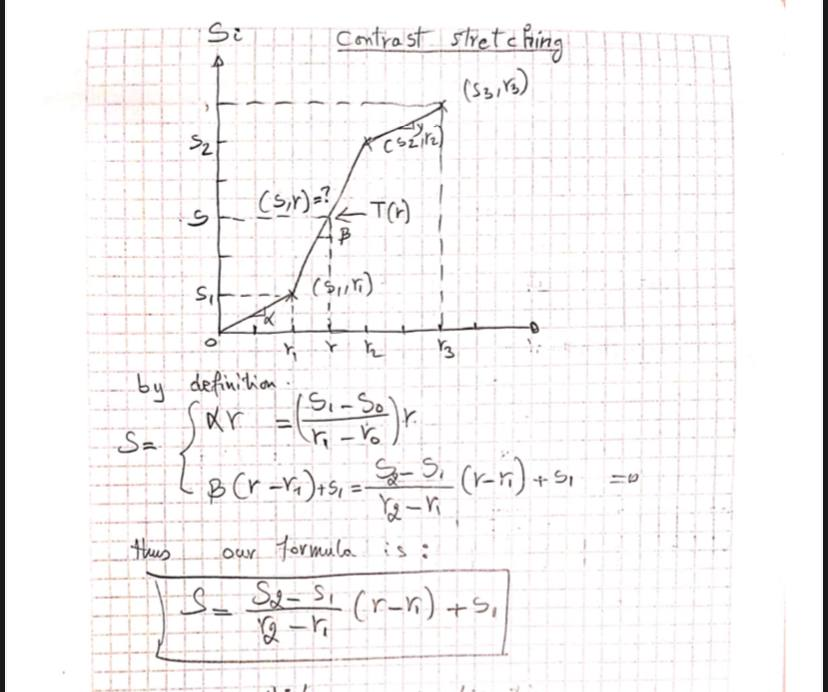 Si
Contrast stretching
(S3,r3)
S2
(S2,r2)
γ
(S,r)=?
S
← T(r)
β
S1
(S1,r1)
α
0
r1 r r2 r3
by definition.
S= { αr = ((S1 - S0)/(r1 - r0)) r
B(r - r1)+S1 = (S2 - S1)/(r2 - r1) (r-r1) + S1 =>
thus our formula is :
S = (S2 - S1)/(r2 - r1) (r-r1) + S1